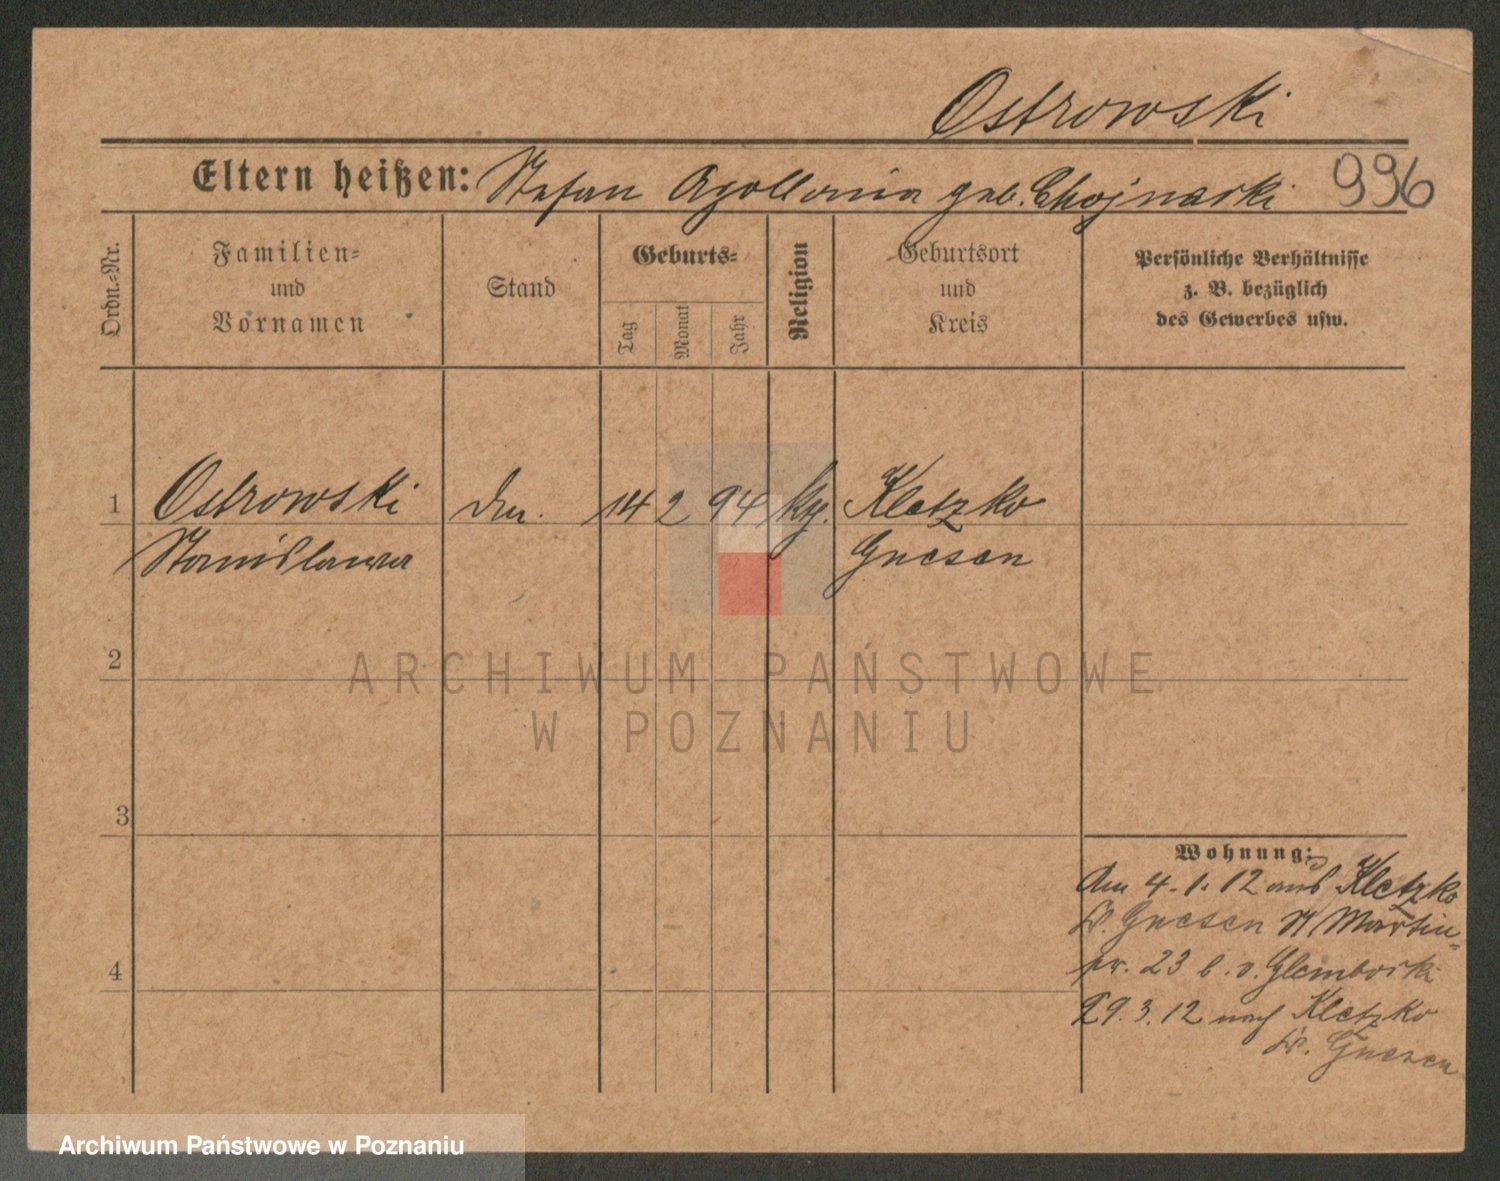 Ostrowski
Eltern heißen: Stefan Apollonia geb. Chojnacki 996
Ordn.-Nr.
Familien-
und
Vornamen
Stand
Geburts-
Tag
Monat
Jahr
Religion
Geburtsort
und
Kreis
Persönliche Verhältnisse
z. B. bezüglich
des Gewerbes usw.
1 Ostrowski 14 2 94 Kletzko
Stanislawa Gnesen
2
3
4
Wohnung:
Am 4.1.12 aus Kletzko
Kr. Gnesen St Martin-
23 b. v. Glemborski
29.3.12 nach Kletzko
Kr. Gnesen
ARCHIWUM PAŃSTWOWE
W POZNANIU
Archiwum Państwowe w Poznaniu